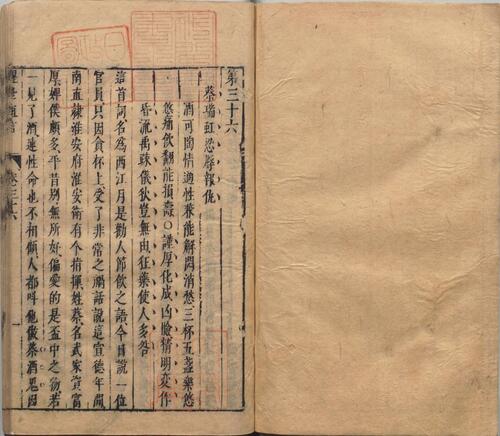 第三十六
蔡瑞虹忍辱報仇
酒可陶情適性兼能解悶消愁三杯五盞樂悠
悠痛飲翻能損壽○謹厚化成凶險精明變作
昏流禹疎儀狄豈無由狂藥使人多咎
這首詞名爲西江月是勸人節飲之語今日說一位
官員只因貪杯上受了非常之禍話說這宣德年間
南直隸淮安府淮安衛有个指揮姓蔡名武家資富
厚婢僕頗多平昔別無所好偏愛的是盃中之物若
一見了酒連性命也不相顧人都呼他做蔡酒鬼因
卷三十六
一